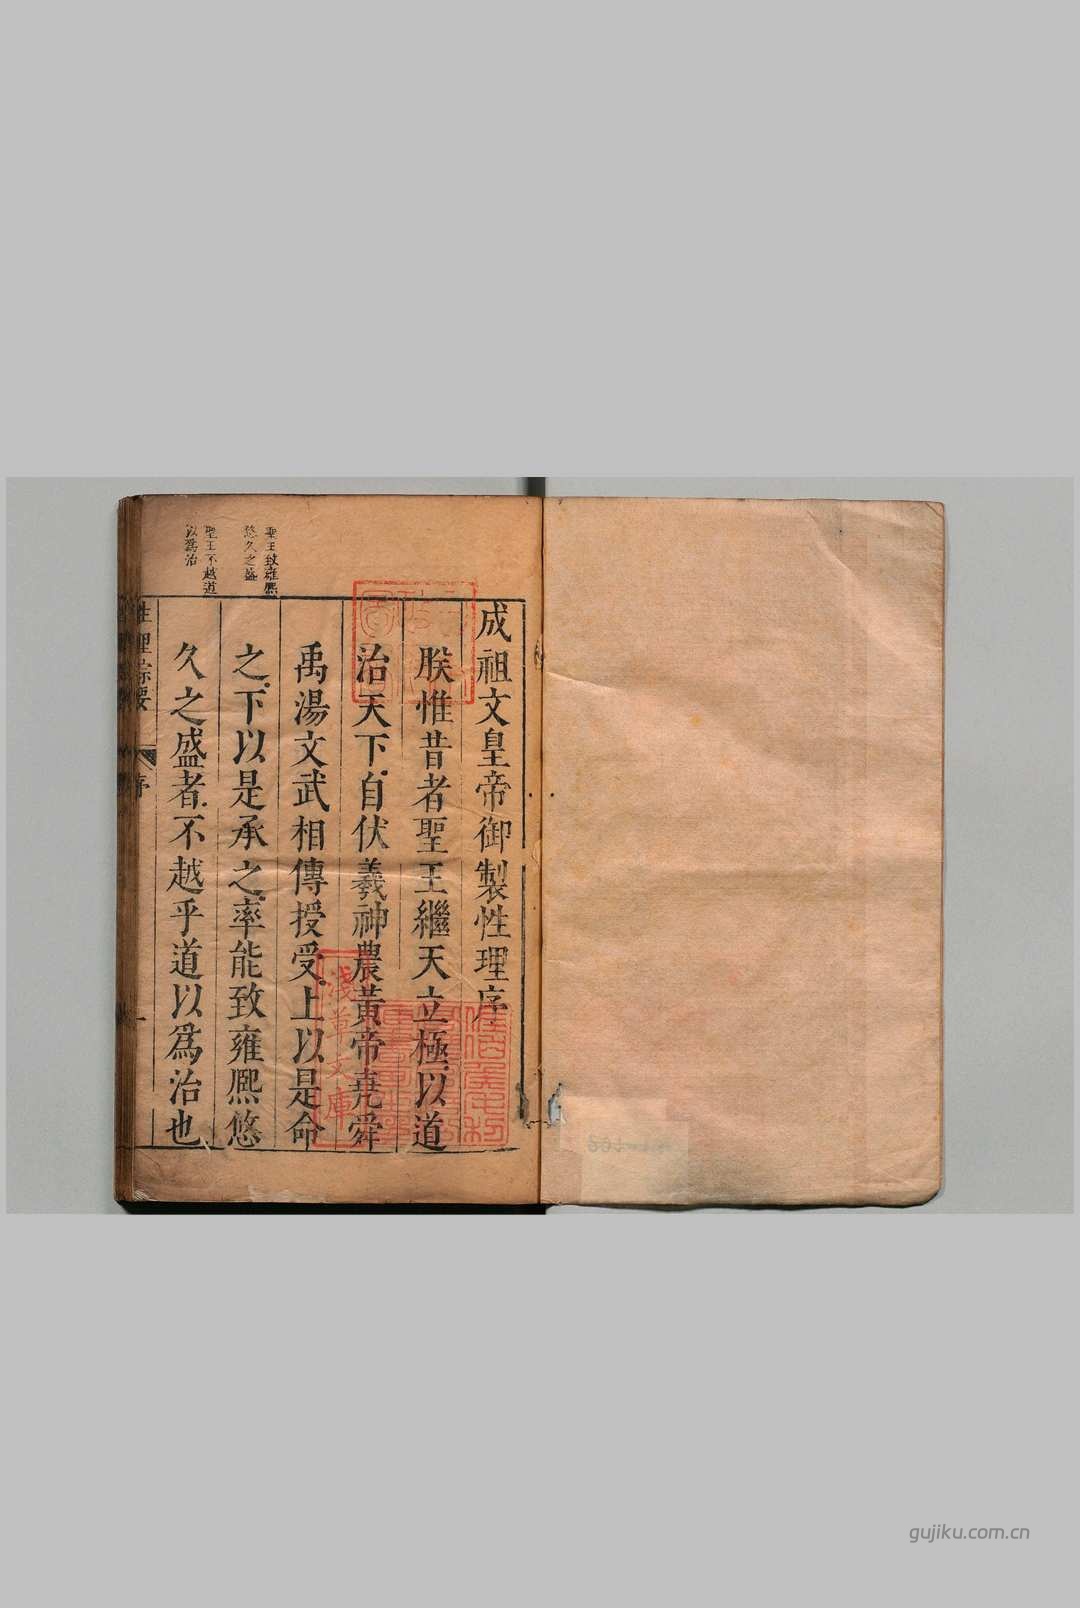 成祖文皇帝御製性理序
朕惟昔者聖王繼天立極以道
治天下自伏羲神農黃帝堯舜
禹湯文武相傳授受上以是命
之下以是承之率能致雍熈悠
久之盛者不越乎道以爲治也
聖王致雍熈
悠久之盛
聖王不越道
以爲治
性理綜要
序
一
淺草文庫
gujiku.com.cn